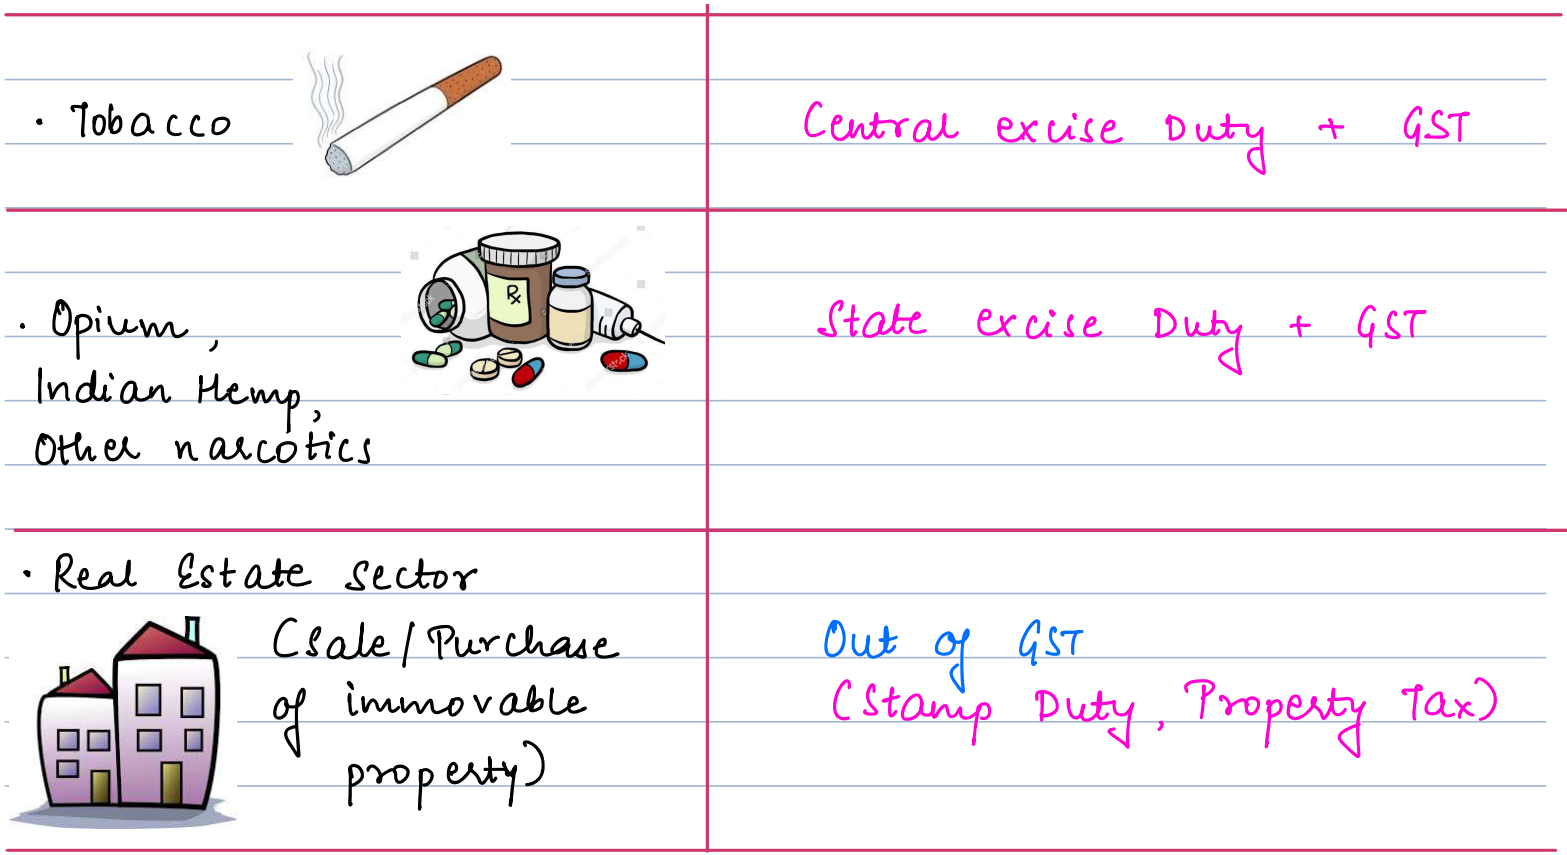 · Tobacco
Central excise Duty + GST
· Opium,
Indian Hemp,
Other narcotics
Rx
State excise Duty + GST
· Real Estate Sector
(Sale/Purchase
of immovable
property)
Out of GST
(Stamp Duty, Property Tax)